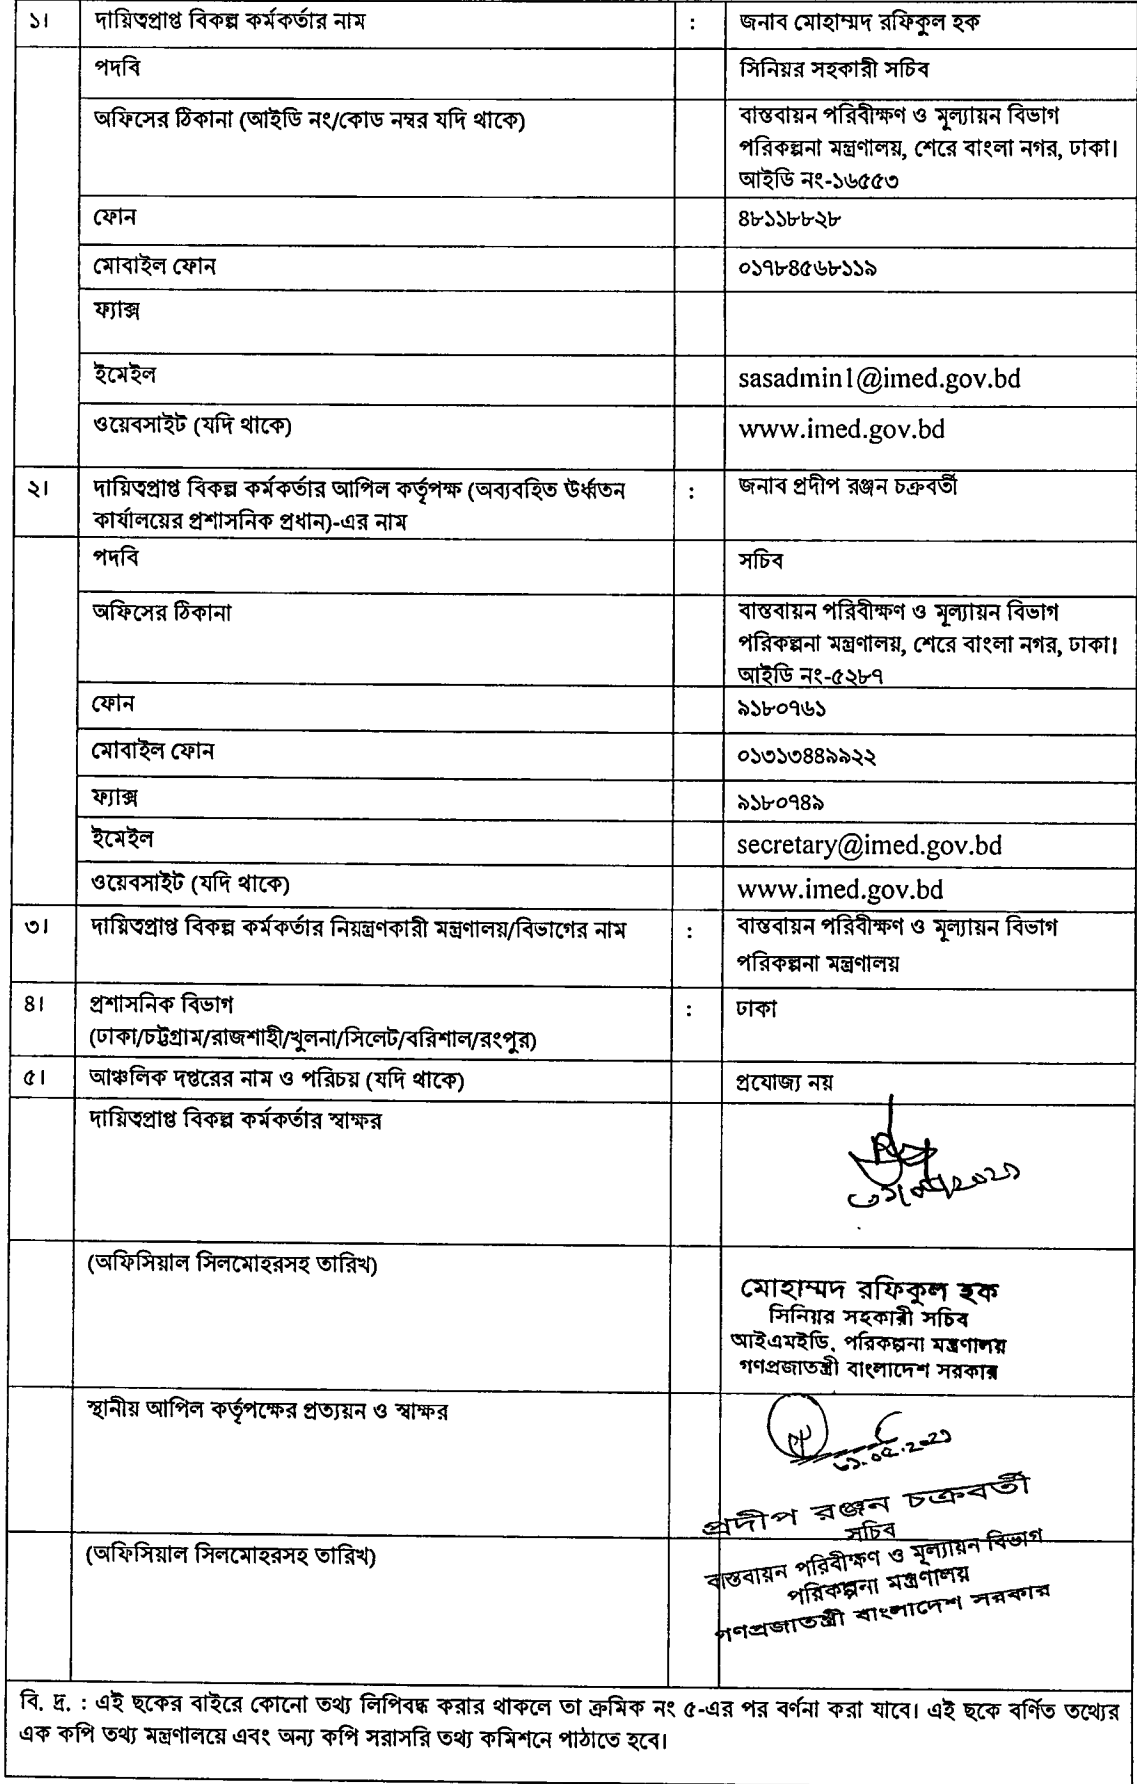 ১। দায়িত্বপ্রাপ্ত বিকল্প কর্মকর্তার নাম : জনাব মোহাম্মদ রফিকুল হক
পদবি সিনিয়র সহকারী সচিব
অফিসের ঠিকানা (আইডি নং/কোড নম্বর যদি থাকে) বাস্তবায়ন পরিবীক্ষণ ও মূল্যায়ন বিভাগ
পরিকল্পনা মন্ত্রণালয়, শেরে বাংলা নগর, ঢাকা।
আইডি নং-১৬৫৫৩
ফোন ৪৮১১৮৮২৮
মোবাইল ফোন ০১৭৮৪৫৬৮১১৯
ফ্যাক্স
ইমেইল sasadmin1@imed.gov.bd
ওয়েবসাইট (যদি থাকে) www.imed.gov.bd
২। দায়িত্বপ্রাপ্ত বিকল্প কর্মকর্তার আপিল কর্তৃপক্ষ (অব্যবহিত উর্ধ্বতন : জনাব প্রদীপ রঞ্জন চক্রবর্তী
কার্যালয়ের প্রশাসনিক প্রধান)-এর নাম
পদবি সচিব
অফিসের ঠিকানা বাস্তবায়ন পরিবীক্ষণ ও মূল্যায়ন বিভাগ
পরিকল্পনা মন্ত্রণালয়, শেরে বাংলা নগর, ঢাকা।
আইডি নং-৫২৮৭
ফোন ৯১৮০৭৬১
মোবাইল ফোন ০১৩১৩৪৪৯৯২২
ফ্যাক্স ৯১৮০৭৪৯
ইমেইল secretary@imed.gov.bd
ওয়েবসাইট (যদি থাকে) www.imed.gov.bd
৩। দায়িত্বপ্রাপ্ত বিকল্প কর্মকর্তার নিয়ন্ত্রণকারী মন্ত্রণালয়/বিভাগের নাম : বাস্তবায়ন পরিবীক্ষণ ও মূল্যায়ন বিভাগ
পরিকল্পনা মন্ত্রণালয়
৪। প্রশাসনিক বিভাগ : ঢাকা
(ঢাকা/চট্টগ্রাম/রাজশাহী/খুলনা/সিলেট/বরিশাল/রংপুর)
৫। আঞ্চলিক দপ্তরের নাম ও পরিচয় (যদি থাকে) প্রযোজ্য নয়
দায়িত্বপ্রাপ্ত বিকল্প কর্মকর্তার স্বাক্ষর
(অফিসিয়াল সিলমোহরসহ তারিখ)
মোহাম্মদ রফিকুল হক
সিনিয়র সহকারী সচিব
আইএমইডি, পরিকল্পনা মন্ত্রণালয়
গণপ্রজাতন্ত্রী বাংলাদেশ সরকার
স্থানীয় আপিল কর্তৃপক্ষের প্রত্যয়ন ও স্বাক্ষর
প্রদীপ রঞ্জন চক্রবর্তী
সচিব
(অফিসিয়াল সিলমোহরসহ তারিখ) বাস্তবায়ন পরিবীক্ষণ ও মূল্যায়ন বিভাগ
পরিকল্পনা মন্ত্রণালয়
গণপ্রজাতন্ত্রী বাংলাদেশ সরকার
বি. দ্র. : এই ছকের বাইরে কোনো তথ্য লিপিবদ্ধ করার থাকলে তা ক্রমিক নং ৫-এর পর বর্ণনা করা যাবে। এই ছকে বর্ণিত তথ্যের
এক কপি তথ্য মন্ত্রণালয়ে এবং অন্য কপি সরাসরি তথ্য কমিশনে পাঠাতে হবে।